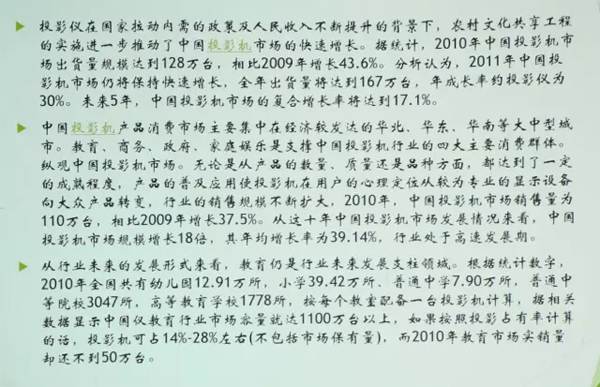 投影仪在国家拉动内需的政策及人民收入不断提升的背景下，农村文化共享工程
的实施进一步推动了中国投影机市场的快速增长。据统计，2010年中国投影机市
场出货量规模达到128万台，相比2009年增长43.6%。分析认为，2011年中国投
影机市场仍将保持快速增长，全年出货量将达到167万台，年成长率约投影仪为
30%。未来5年，中国投影机市场的复合增长率将达到17.1%。
中国投影机产品消费市场主要集中在经济较发达的华北、华东、华南等大中型城
市。教育、商务、政府、家庭娱乐是支撑中国投影机行业的四大主要消费群体。
纵观中国投影机市场。无论是从产品的数量、质量还是品种方面，都达到了一定
的成熟程度，产品的普及应用使投影机在用户的心理定位从较为专业的显示设备
向大众产品转变，行业的销售规模不断扩大，2010年，中国投影机市场销售量为
110万台，相比2009年增长37.5%。从这十年中国投影机市场发展情况来看，中国
投影机市场规模增长18倍，其年均增长率为39.14%，行业处于高速发展期。
从行业未来的发展形式来看，教育仍是行业未来发展支柱领域。根据统计数字，
2010年全国共有幼儿园12.91万所，小学39.42万所、普通中学7.90万所，普通中
等院校3047所，高等教育学校1778所，按每个教室配备一台投影机计算，据相关
数据显示中国仪教育行业市场容量就达1100万台以上，如果按照投影占有率计算
的话，投影机可占14%-28%左右(不包括市场保有量)，而2010年教育市场实销量
却还不到50万台。